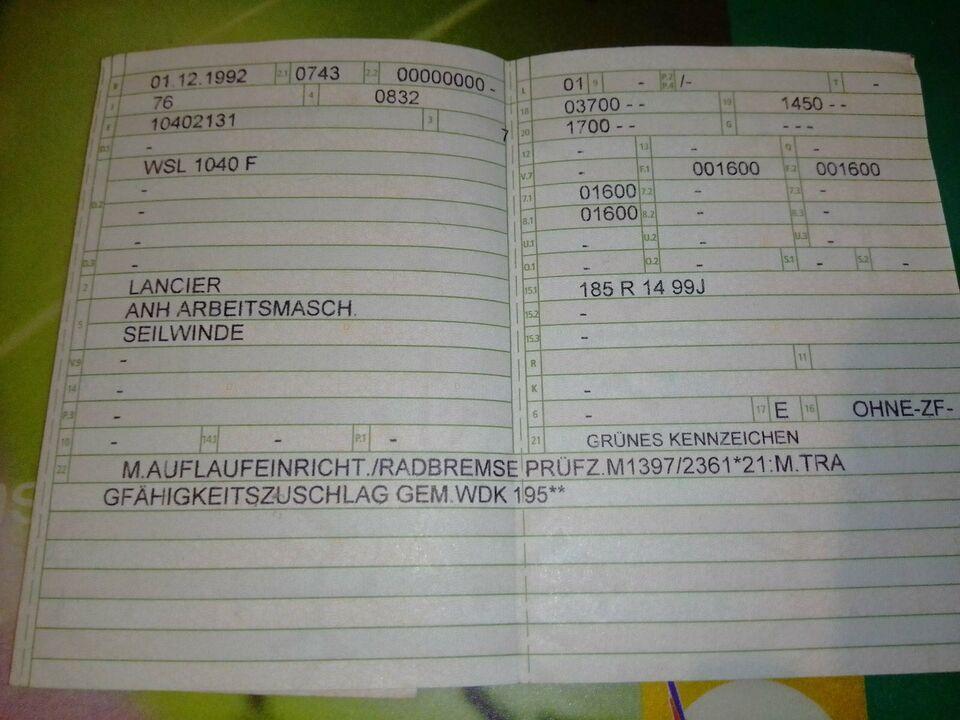 B 01.12.1992 2.1 0743 2.2 00000000 -
J 76 4 0832
E 10402131 3 7
D.1 -
WSL 1040 F
D.2 -
-
-
D.3 -
2 LANCIER
5 ANH ARBEITSMASCH.
SEILWINDE
V.9 -
14 -
P.3 -
10 - 14.1 - P.1 -
L 01 9 - P.2 P.4 /- T -
18 03700 - - 19 1450 - -
20 1700 - - G - - -
12 - 13 - Q -
V.7 - F.1 001600 F.2 001600
7.1 01600 7.2 - 7.3 -
8.1 01600 8.2 - 8.3 -
U.1 - U.2 - U.3 -
O.1 - O.2 - S.1 - S.2 -
15.1 185 R 14 99J
15.2 -
15.3 -
R 11
K -
6 - 17 E 16 OHNE-ZF-
21 GRÜNES KENNZEICHEN
22 M.AUFLAUFEINRICHT./RADBREMSE PRÜFZ.M1397/2361*21:M.TRA
GFÄHIGKEITSZUSCHLAG GEM.WDK 195**